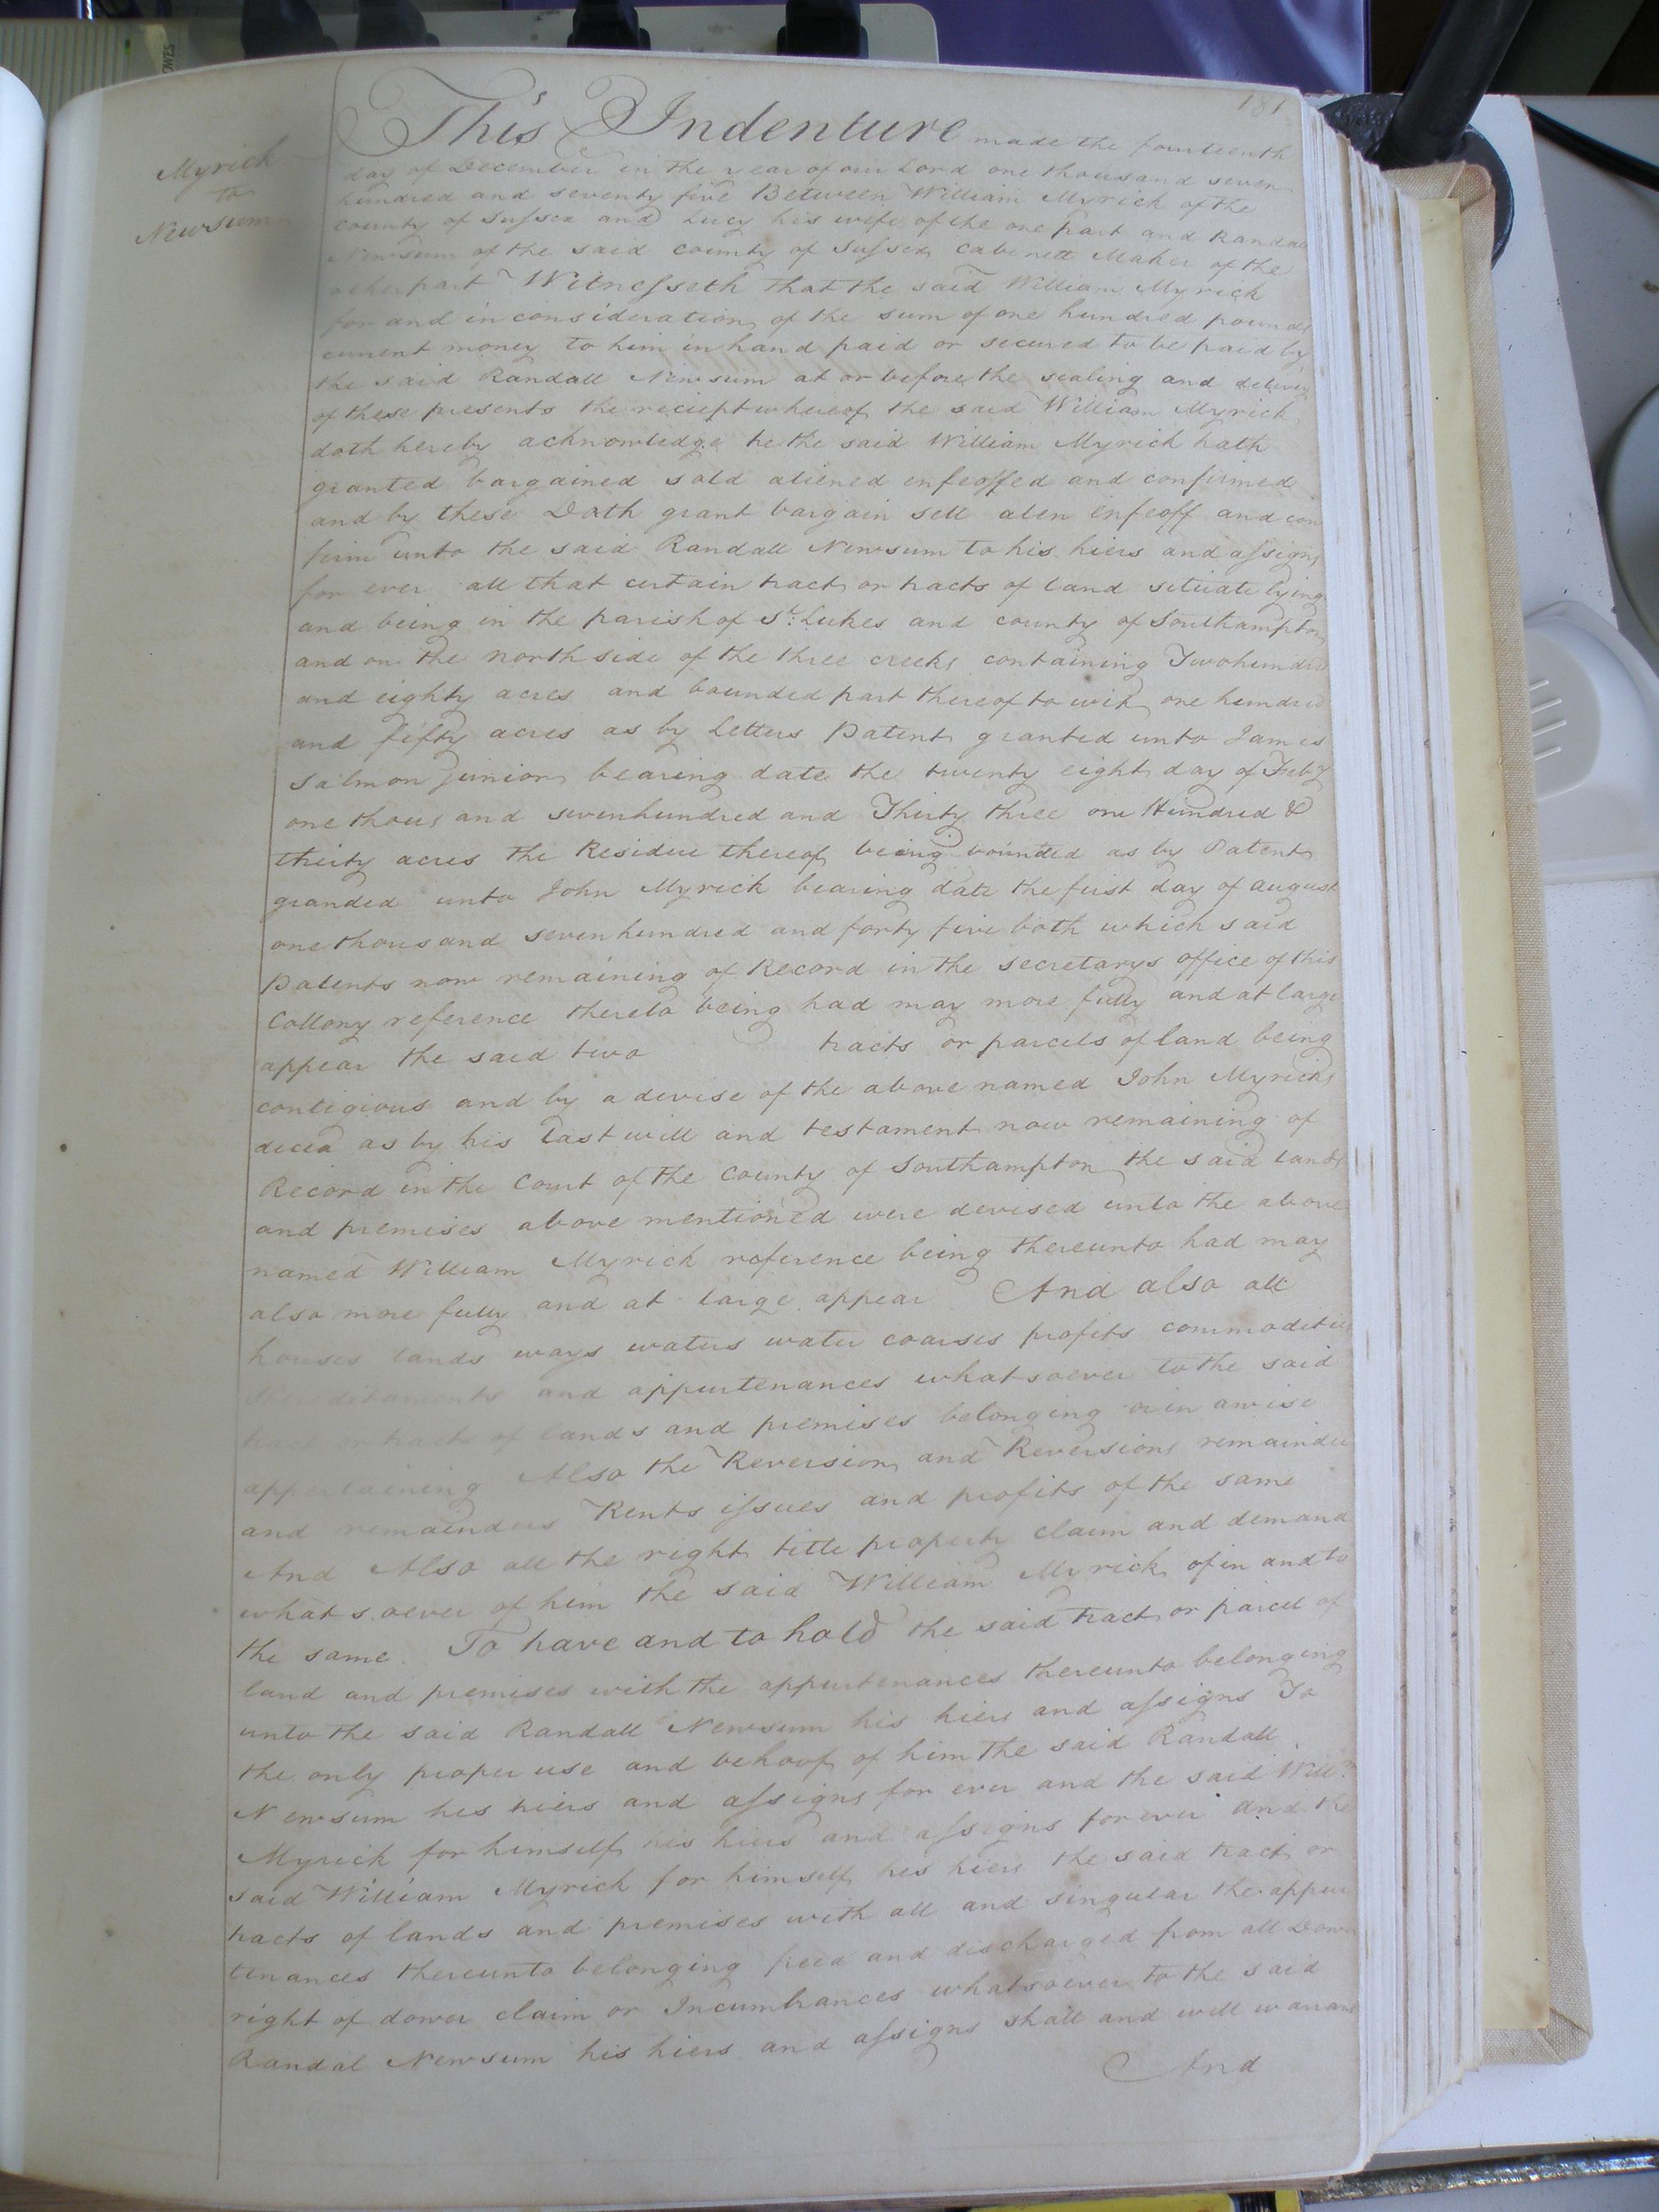 181
Myrich
to
Newsum
This Indenture made the fourteenth
day of December in the year of our Lord one thousand seven
hundred and seventy five Between William Myrick of the
county of Sussex and Lucy his wife of the one part and Randall
Newsum of the said county of Sussex Cabinett Maker of the
other part Witnesseth that the said William Myrick
for and in consideration of the sum of one hundred pounds
current money to him in hand paid or secured to be paid by
the said Randall Newsum at or before the sealing and delivery
of these presents the reciept whereof the said William Myrick
doth hereby acknowledge he the said William Myrick hath
granted bargained sold aliened enfeoffed and confirmed
and by these Doth grant bargain sell alen enfeoff and con
firm unto the said Randall Newsum to his hiers and assigns
for ever all that certain tract or tracts of land setuate lying
and being in the parish of St. Lukes and county of Southampton
and on the north side of the three creeks containing Two hundred
and eighty acres and bounded part thereof to wit one hundred
and fifty acres as by Letters Patent granted unto James
Salmon Junior bearing date the twenty eight day of Feby
one thousand sevenhundred and Thirty three one Hundred &
thirty acres the Residue thereof being bounded as by Patent
granded unto John Myrick bearing date the first day of august
one thousand sevenhundred and forty five both which said
Patents now remaining of Record in the secretarys office of this
Collony reference thereto being had may more fully and at large
appear the said two tracts or parcels of land being
contigious and by a devise of the above named John Myrick
decea as by his last will and testament now remaining of
Record in the Court of the County of Southampton the said lands
and premises above mentioned were devised unto the above
named William Myrick reference being thereunto had may
also more fully and at large appear And also all
houses lands ways waters water coarses profits commodities
hereditaments and appurtenances whatsoever to the said
tract or tracts of lands and premises belonging or in awise
appertaining Also the Reversion and Reversions remainder
and remainders Rents issues and profits of the same
And Also all the right title property claim and demand
whatsoever of him the said William Myrick of in and to
the same. To have and to hold the said tract or parcel of
land and premises with the appurtenances thereunto belonging
unto the said Randall Newsum his hiers and assigns To
the only proper use and behoof of him the said Randall
Newsum his hiers and assigns for ever and the said Willm
Myrick for himself his hiers and assigns for ever and the
said William Myrick for himself his hiers the said tract or
tracts of lands and premises with all and singular the appur
tenances thereunto belonging freed and discharged from all Dower
right of dower claim or Incumbrances whatsoever to the said
Randal Newsum his hiers and assigns shall and will warant
And